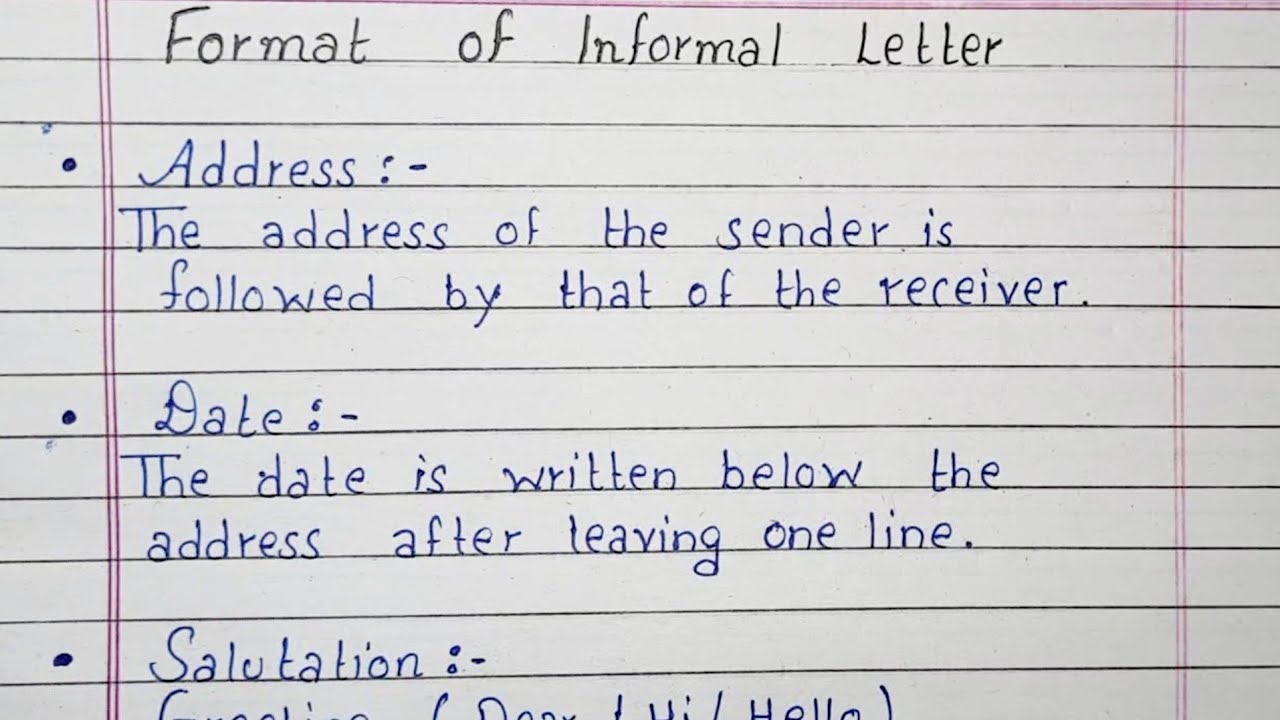 Format of Informal Letter
• Address :-
The address of the sender is
followed by that of the receiver.
• Date :-
The date is written below the
address after leaving one line.
• Salutation :-
Greeting ( Dear / Hi / Hello )